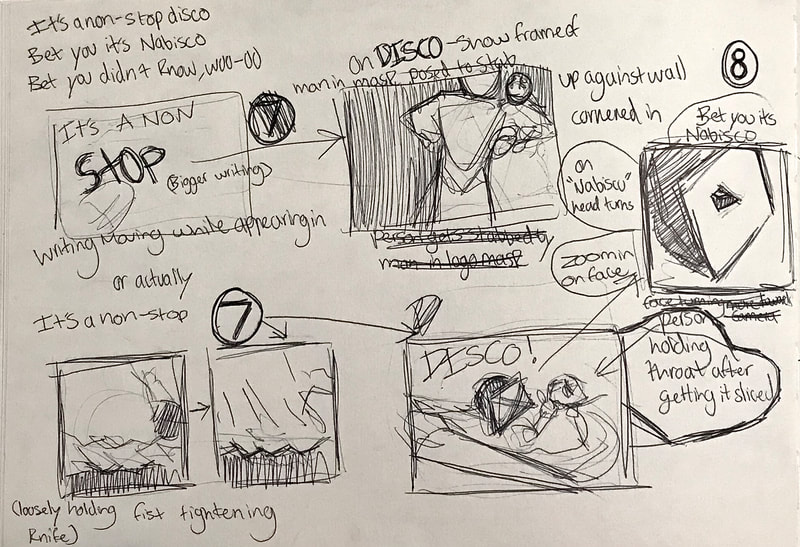 It's a non-stop disco
Bet you it's Nabisco
Bet you didn't know, woo-oo
On DISCO - Show framed
man in mask, posed to stab
up against wall
cornered in
8
Bet you its
Nabisco
It's A NON
STOP
(Bigger writing)
7
on
"Nabisco"
head turns
Writing Moving while appearing in
person gets stabbed by
man in logo mask
zoom in
on face
or actually
It's a non-stop
7
face turning more toward
camera
DISCO!
Person
holding
throat after
getting it sliced
(loosely holding
knife)
fist tightening